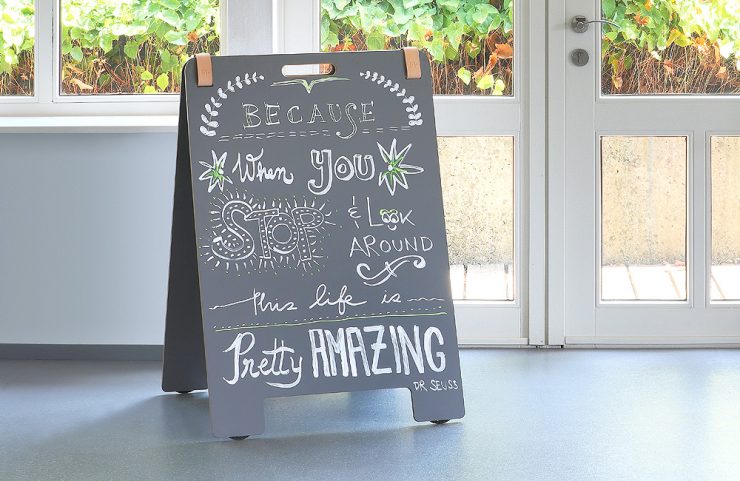 BECAUSE
When YOU
STOP & Look
AROUND
this life is
Pretty AMAZING
DR SEUSS